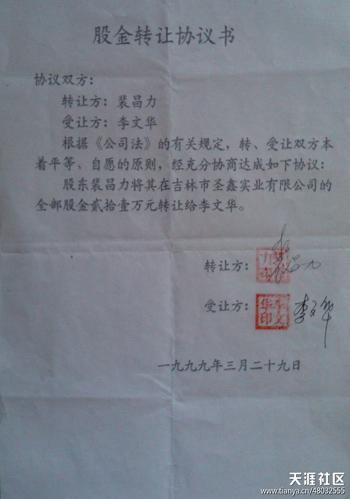 股金转让协议书
协议双方：
转让方：裴昌力
受让方：李文华
根据《公司法》的有关规定，转、受让双方本
着平等、自愿的原则，经充分协商达成如下协议：
股东裴昌力将其在吉林市圣鑫实业有限公司的
全部股金贰拾壹万元转让给李文华。
转让方：
受让方：李文华
李文华印
一九九九年三月二十九日
天涯社区
http://www.tianya.cn/48032555